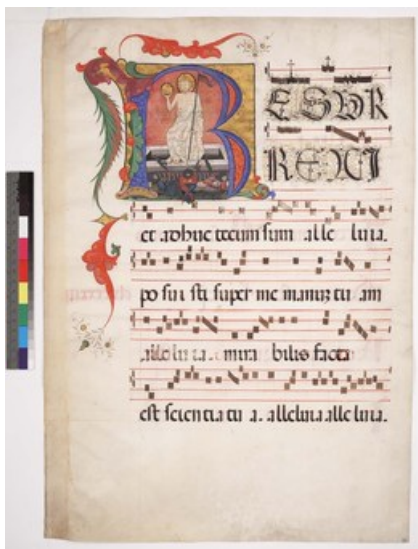 RESUR
REXI
et adhuc tecum sum alle luia.
po sui sti super me manuz tu am
alleluia. mira bilis facta
est scien tia tu a. alleluia alle luia.